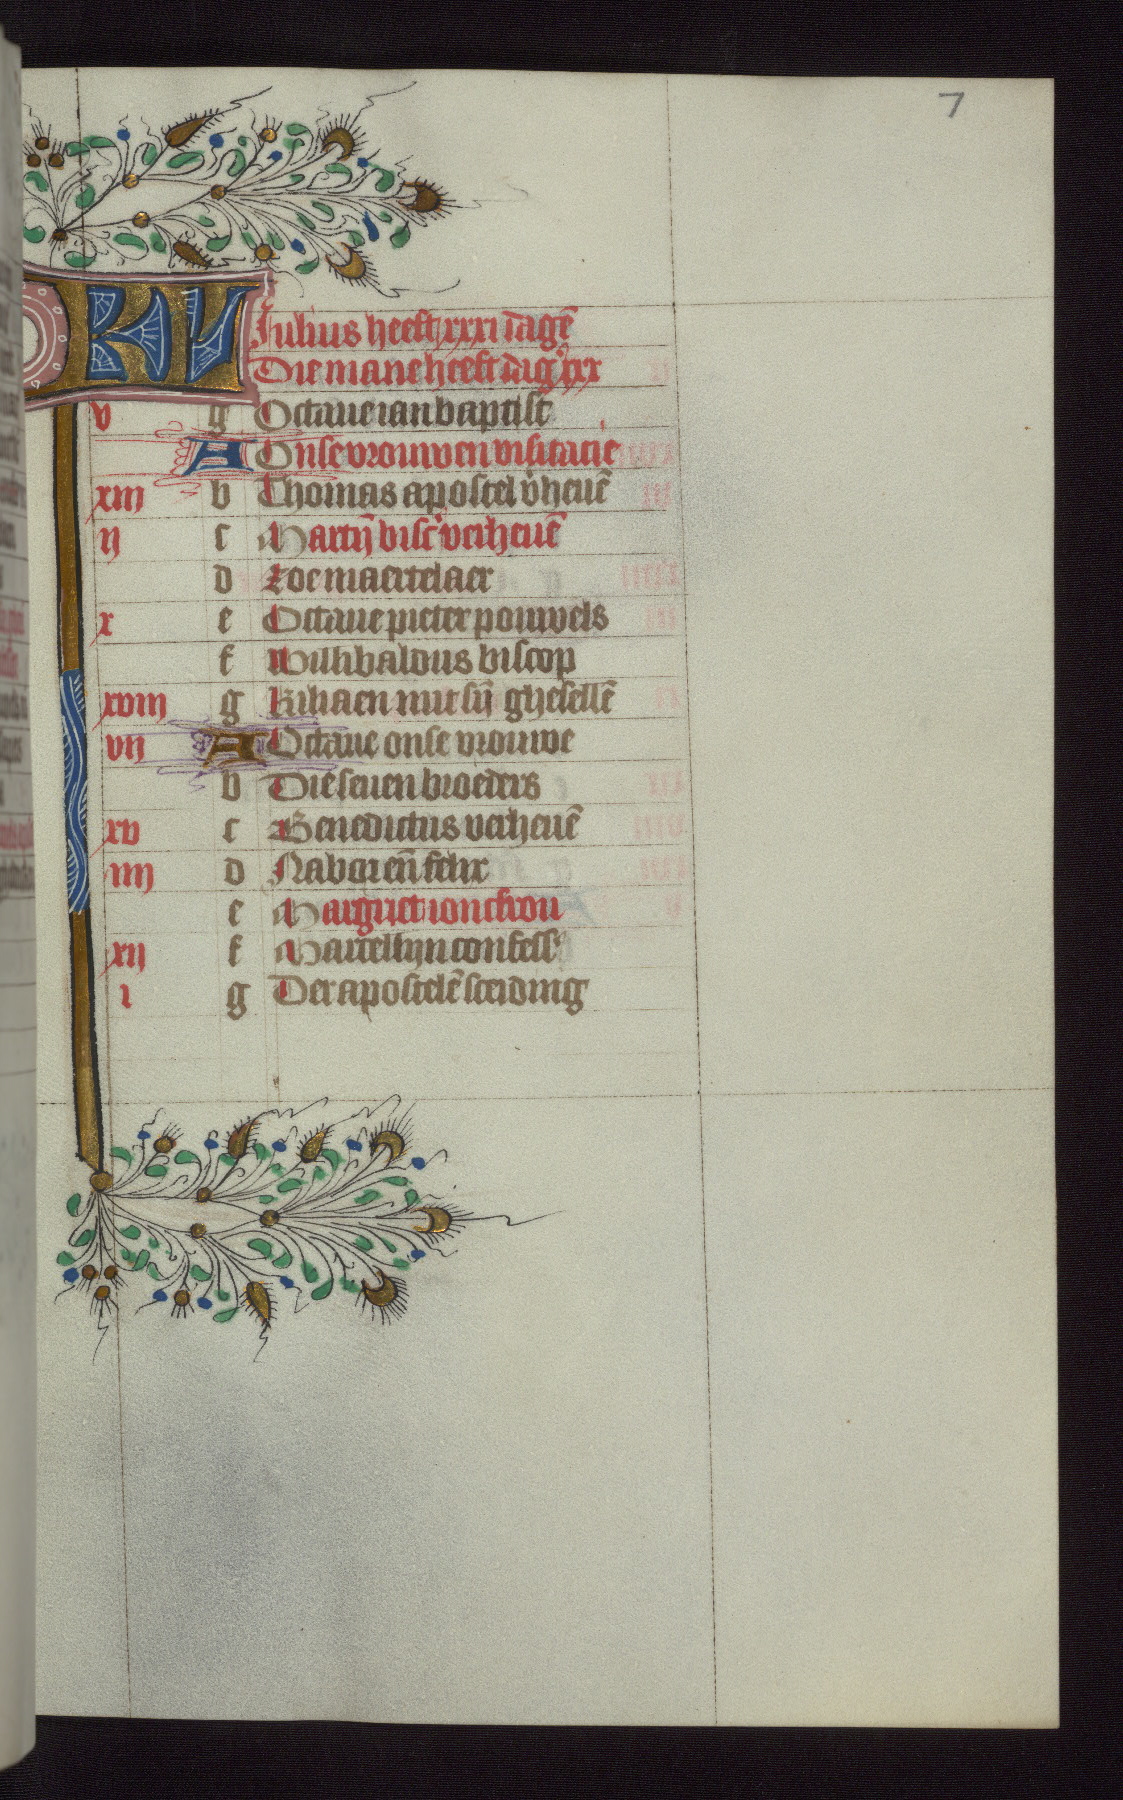 7
KL Iulius heeft xxxi dagē
Die mane heeft dag' xxx
v g Octaue ian baptist
A Onse vrouwen visitacie
xiii b Thomas apostel v'heuē
ij c Martij bisc' verheuē
d Zoe maertelaer
x e Octaue pieter pouwels
f Wilhbaldus biscop
xviii g Kiliaen mit sij ghesellē
vij A Octaue onse vrouwe
b Die seuen broeders
xv c Benedictus verheuē
iiij d Nabor eñ felix
e Margriet ionckvou
xij f Marcellijn confess'
i g Der apostelē sceiding